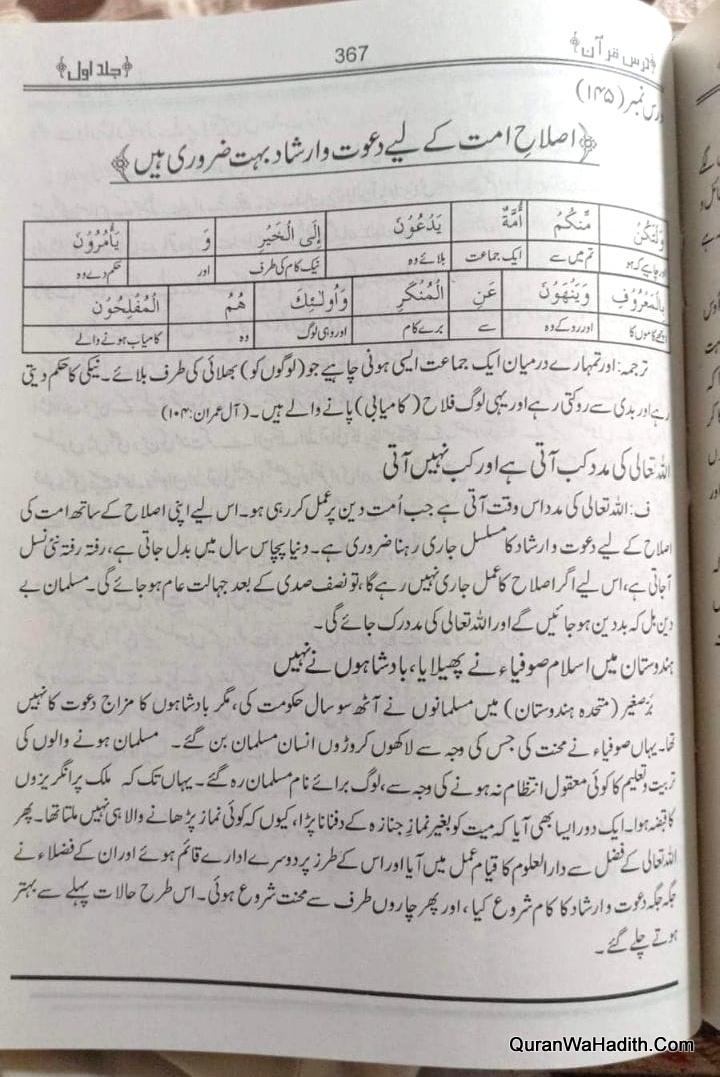 ﴿درس قرآن﴾ 367 ﴿جلد اول﴾
درس نمبر (۱۴۵)
﴿اصلاحِ امت کے لیے دعوت وارشاد بہت ضروری ہیں﴾
وَلْتَكُنْ مِّنكُمْ أُمَّةٌ يَدْعُوْنَ إِلَى الْخَيْرِ وَ يَأْمُرُوْنَ
اور چاہیے کہ ہو تم میں سے ایک جماعت بلائے وہ نیک کام کی طرف اور حکم دے وہ
بِالْمَعْرُوْفِ وَيَنْهَوْنَ عَنِ الْمُنْكَرِ وَأُولٰـئِكَ هُمُ الْمُفْلِحُوْن
اچھے کاموں کا اور روکے وہ سے برے کام اور وہی لوگ وہ کامیاب ہونے والے
ترجمہ: اور تمہارے درمیان ایک جماعت ایسی ہونی چاہیے جو (لوگوں کو) بھلائی کی طرف بلائے۔ نیکی کا حکم دیتی
رہے اور بدی سے روکتی رہے اور یہی لوگ فلاح (کامیابی) پانے والے ہیں۔ (آل عمران: ۱۰۴)
اللہ تعالی کی مدد کب آتی ہے اور کب نہیں آتی
ف: اللہ تعالی کی مدد اس وقت آتی ہے جب اُمت دین پر عمل کر رہی ہو۔ اس لیے اپنی اصلاح کے ساتھ امت کی
اصلاح کے لیے دعوت وارشاد کا مسلسل جاری رہنا ضروری ہے۔ دنیا پچاس سال میں بدل جاتی ہے، رفتہ رفتہ نئی نسل
آجاتی ہے، اس لیے اگر اصلاح کا عمل جاری نہیں رہے گا، تو نصف صدی کے بعد جہالت عام ہوجائے گی۔ مسلمان بے
دین بل کہ بد دین ہوجائیں گے اور اللہ تعالی کی مدد رک جائے گی۔
ہندوستان میں اسلام صوفیاء نے پھیلایا، بادشاہوں نے نہیں
برِّصغیر (متحدہ ہندوستان) میں مسلمانوں نے آٹھ سو سال حکومت کی، مگر بادشاہوں کا مزاج دعوت کا نہیں
تھا۔ یہاں صوفیاء نے محنت کی جس کی وجہ سے لاکھوں کروڑوں انسان مسلمان بن گئے۔ مسلمان ہونے والوں کی
تربیت و تعلیم کا کوئی معقول انتظام نہ ہونے کی وجہ سے، لوگ برائے نام مسلمان رہ گئے۔ یہاں تک کہ ملک پر انگریزوں
کا قبضہ ہوا۔ ایک دور ایسا بھی آیا کہ میت کو بغیر نمازِ جنازہ کے دفنانا پڑا، کیوں کہ کوئی نماز پڑھانے والا ہی نہیں ملتا تھا۔ پھر
اللہ تعالی کے فضل سے دار العلوم کا قیام عمل میں آیا اور اس کے طرز پر دوسرے ادارے قائم ہوئے اور ان کے فضلاء نے
جگہ جگہ دعوت وارشاد کا کام شروع کیا، اور پھر چاروں طرف سے محنت شروع ہوئی۔ اس طرح حالات پہلے سے بہتر
ہوتے چلے گئے۔
QuranWaHadith.Com